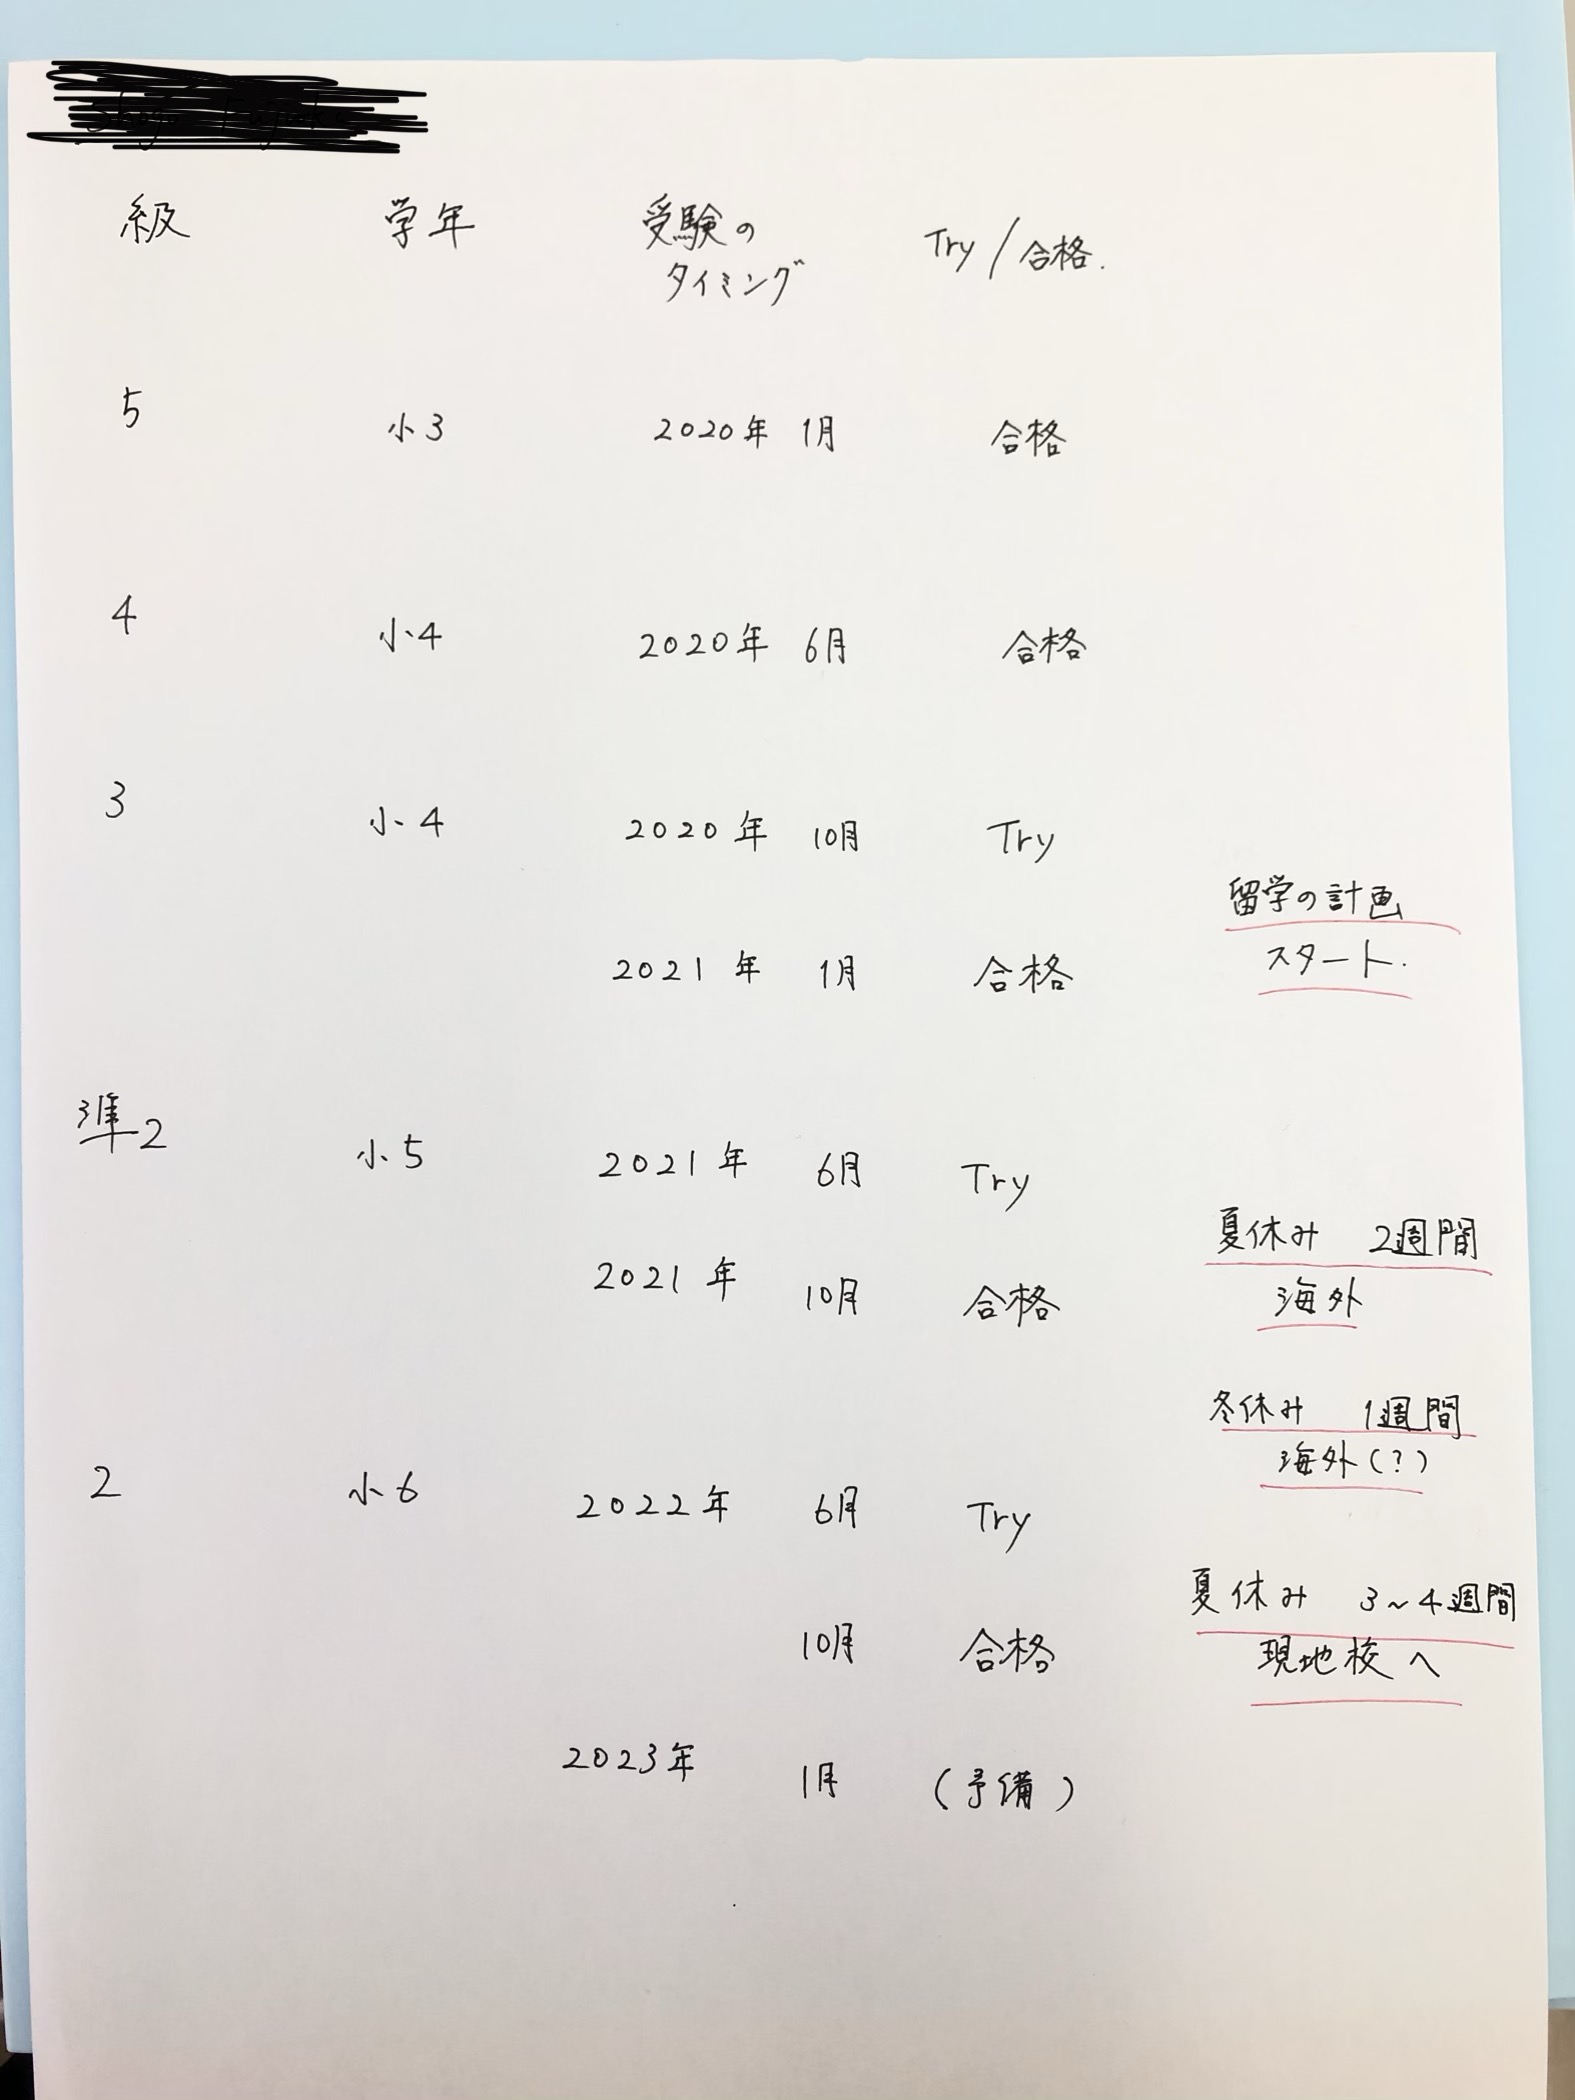 級 学年 受験の Try/合格.
タイミング
5 小3 2020年 1月 合格
4 小4 2020年 6月 合格
3 小4 2020年 10月 Try
留学の計画
2021年 1月 合格 スタート.
準2 小5 2021年 6月 Try
夏休み 2週間
2021年 10月 合格 海外
冬休み 1週間
海外(?)
2 小6 2022年 6月 Try
夏休み 3~4週間
10月 合格 現地校へ
2023年 1月 (予備)